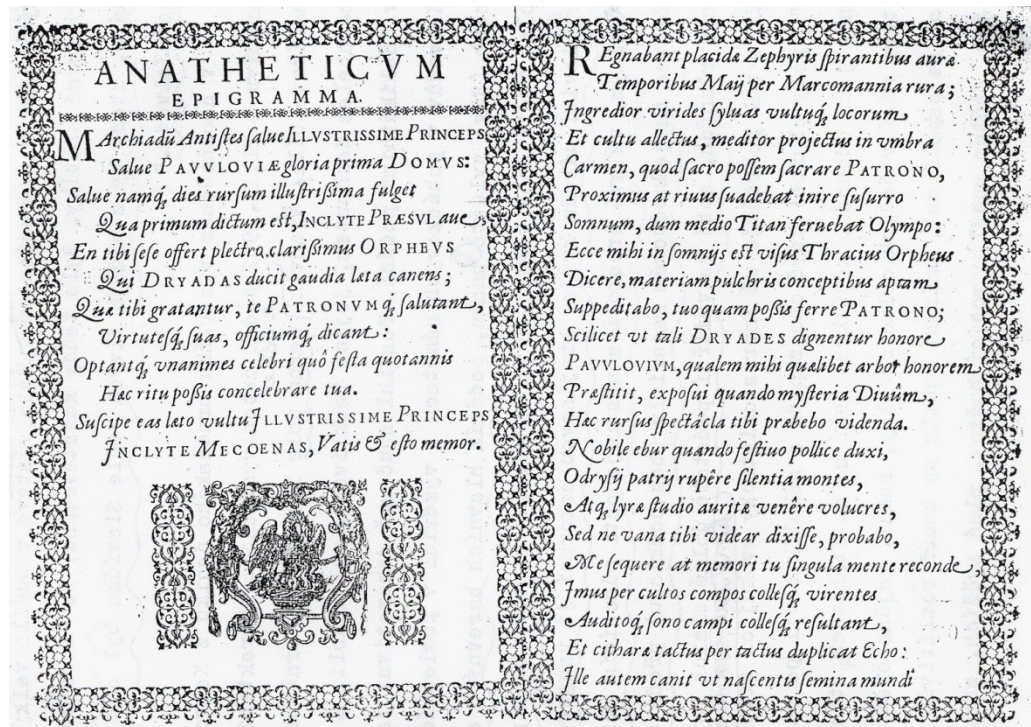 ANATHETICVM
EPIGRAMMA.
MArchiadũ Antistes salue ILLVSTRISSIME PRINCEPS
Salue PAVVLOVIÆ gloria prima DOMVS:
Salue namq́; dies rursum illustrissima fulget
Qua primum dictum est, INCLYTE PRÆSVL aue,
En tibi sese offert plectro clarissimus ORPHEVS
Qui DRYADAS ducit gaudia læta canens;
Quæ tibi gratantur, te PATRONVMq́; salutant,
Virtutesq́; suas, officiumq́; dicant:
Optantq́; vnanimes celebri quô festa quotannis
Hæc ritu possis concelebrare tua.
Suscipe eas læto vultu JLLVSTRISSIME PRINCEPS
JNCLYTE MECOENAS, Vatis & esto memor.
REgnabant placidæ Zephyris spirantibus auræ
Temporibus Maij per Marcomannia rura;
Jngredior virides syluas vultuq́; locorum
Et cultu allectus, meditor projectus in vmbra
Carmen, quod sacro possem sacrare PATRONO,
Proximus at riuus suadebat inire susurro
Somnum, dum medio Titan feruebat Olympo:
Ecce mihi in somnijs est visus Thracius Orpheus
Dicere, materiam pulchris conceptibus aptam
Suppeditabo, tuo quam possis ferre PATRONO;
Scilicet vt tali DRYADES dignentur honore
PAVVLOVIVM, qualem mihi quælibet arbor honorem
Præstitit, exposui quando mysteria Diuûm,
Hæc rursus spectâcla tibi præbebo videnda.
Nobile ebur quando festiuo pollice duxi,
Odrysij patrij rupêre silentia montes,
Atq́; lyræ studio auritæ venêre volucres,
Sed ne vana tibi videar dixisse, probabo,
Me sequere at memori tu singula mente reconde,
Jmus per cultos compos collesq́; virentes
Auditoq́; sono campi collesq́; resultant,
Et citharæ tactus per tactus duplicat Echo:
Jlle autem canit vt nascentis semina mundi